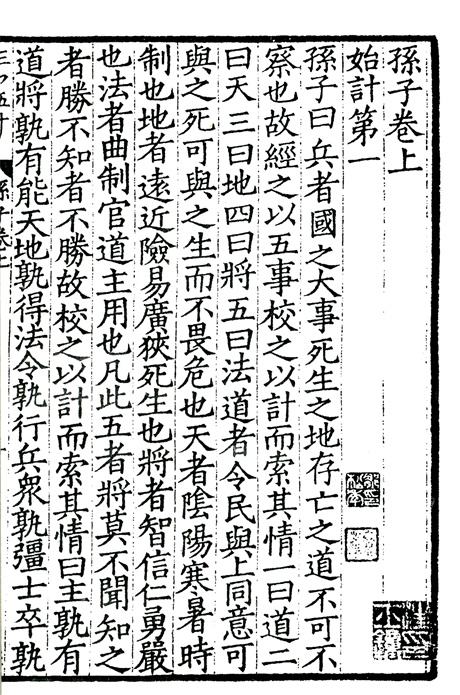 孫子卷上
始計第一
孫子曰兵者國之大事死生之地存亡之道不可不
察也故經之以五事校之以計而索其情一曰道二
曰天三曰地四曰將五曰法道者令民與上同意可
與之死可與之生而不畏危也天者陰陽寒暑時
制也地者遠近險易廣狹死生也將者智信仁勇嚴
也法者曲制官道主用也凡此五者將莫不聞知之
者勝不知者不勝故校之以計而索其情曰主孰有
道將孰有能天地孰得法令孰行兵衆孰彊士卒孰
孫子卷上